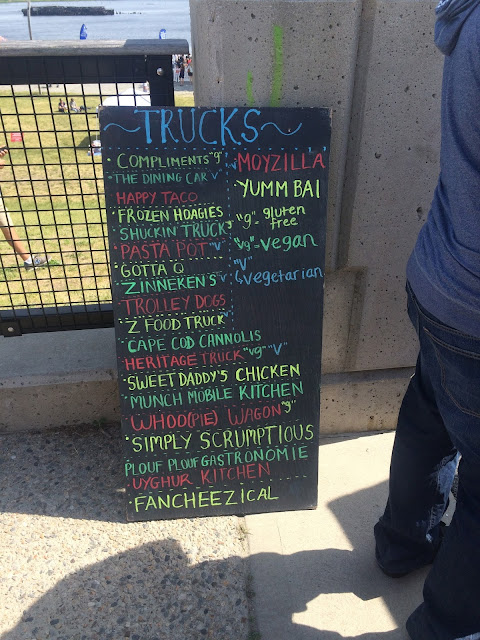 ~TRUCKS~
COMPLIMENTS "g"
THE DINING CAR V
HAPPY TACO
FROZEN HOAGIES
SHUCKIN' TRUCK
PASTA POT "V"
GOTTA Q
ZINNEKEN'S V
TROLLEY DOGS
Z FOOD TRUCK V
CAPE COD CANNOLIS
HERITAGE TRUCK "vg" "V"
SWEET DADDY'S CHICKEN
MUNCH MOBILE KITCHEN
WHOO(PIE) WAGON "g"
SIMPLY SCRUMPTIOUS
PLOUF PLOUF GASTRONOMIE
UYGHUR KITCHEN
FANCHEEZICAL
MOYZILLA
YUMM BAI
"g" - gluten
free
"vg" - vegan
"V"
vegetarian